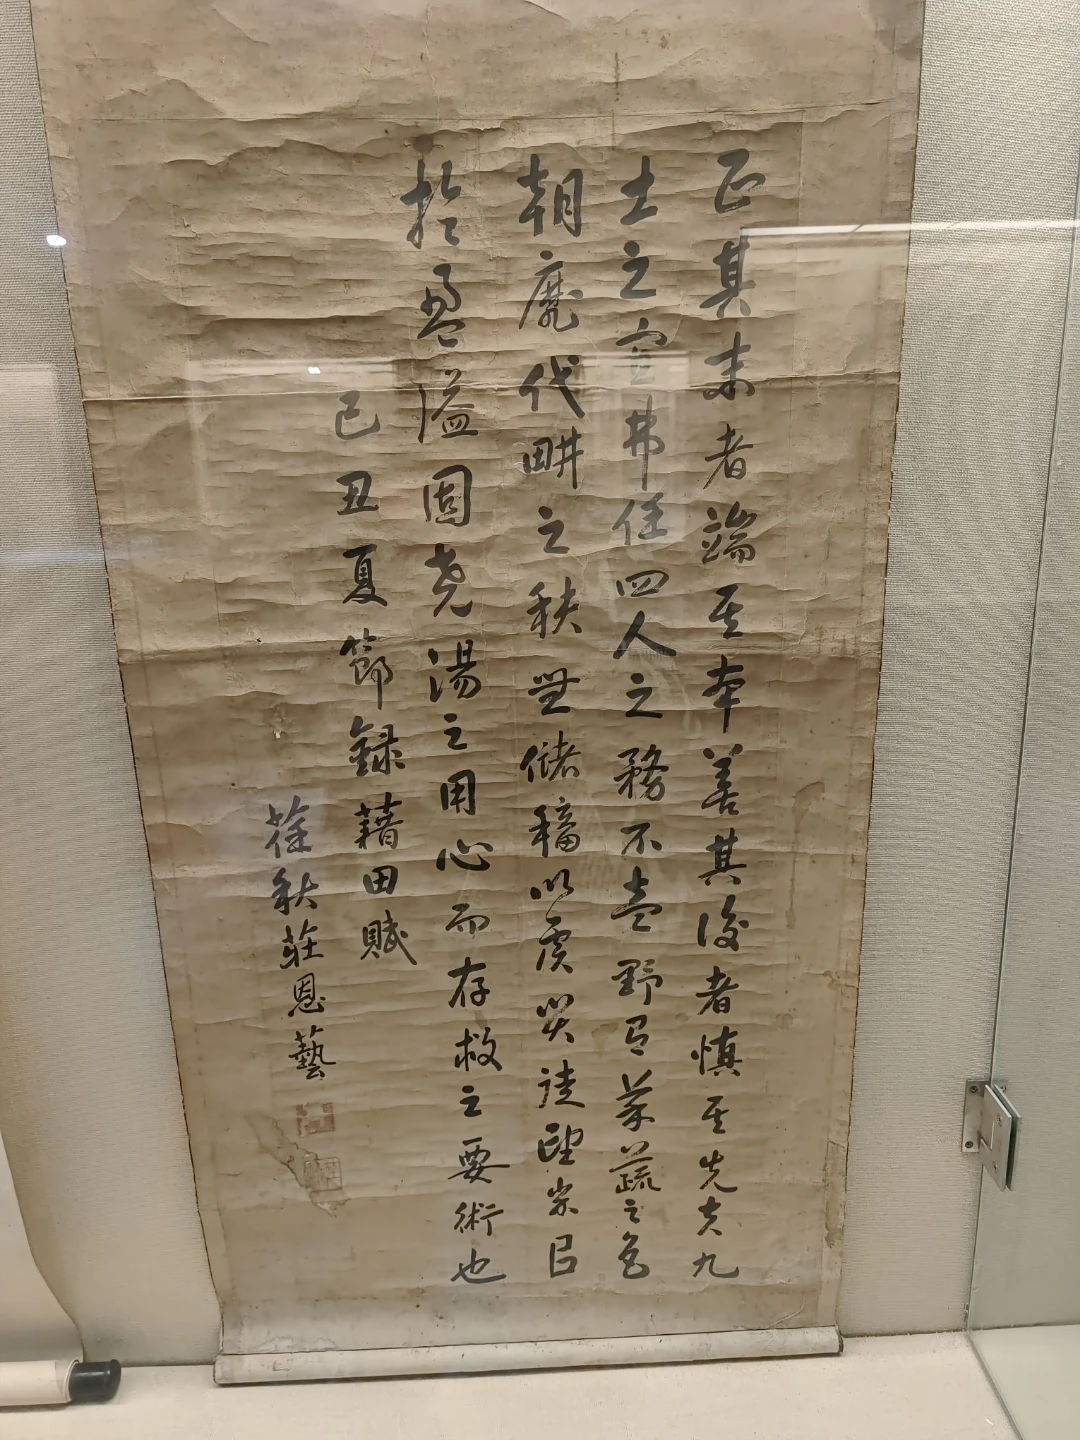 正其末者端其本善其後者慎其先夫九
土之宜弗任四人之務不壹野有菜蔬之色
朝靡代耕之秩無儲稸以虞災徒望歲以
於盈溢固堯湯之用心而存救之要術也
己丑夏節録藉田賦
莊恩藝